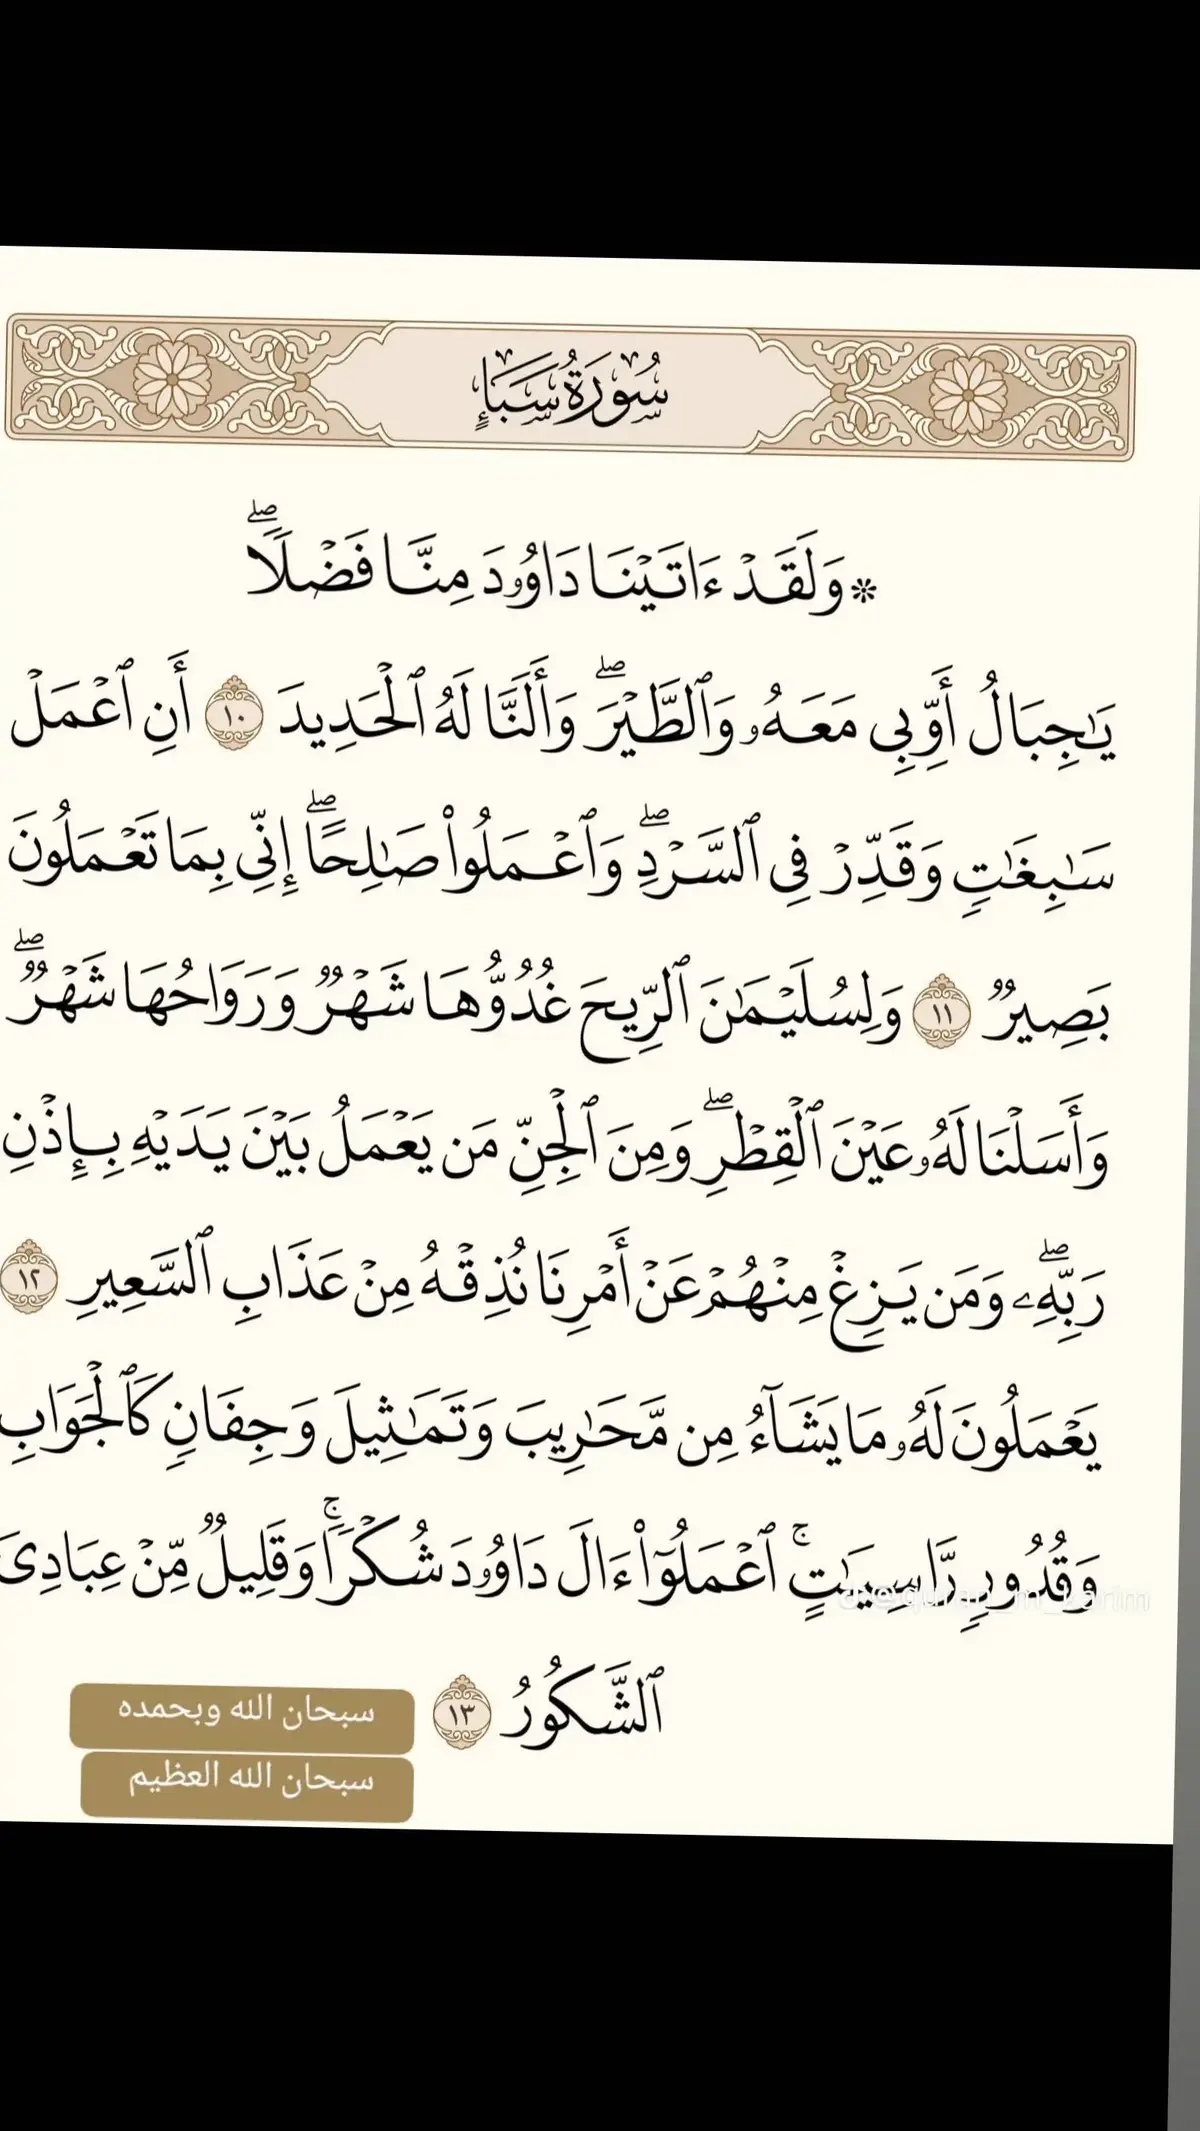 سُورَةُ سَبَإٍ
* وَلَقَدْ ءَاتَيْنَا دَاوُۥدَ مِنَّا فَضْلًاۖ
يَٰجِبَالُ أَوِّبِى مَعَهُۥ وَٱلطَّيْرَۖ وَأَلَنَّا لَهُ ٱلْحَدِيدَ ١٠ أَنِ ٱعْمَلْ
سَٰبِغَٰتٍ وَقَدِّرْ فِى ٱلسَّرْدِۖ وَٱعْمَلُوا۟ صَٰلِحًاۖ إِنِّى بِمَا تَعْمَلُونَ
بَصِيرٌ ١١ وَلِسُلَيْمَٰنَ ٱلرِّيحَ غُدُوُّهَا شَهْرٌ وَرَوَاحُهَا شَهْرٌۖ
وَأَسَلْنَا لَهُۥ عَيْنَ ٱلْقِطْرِۖ وَمِنَ ٱلْجِنِّ مَن يَعْمَلُ بَيْنَ يَدَيْهِ بِإِذْنِ
رَبِّهِۦۖ وَمَن يَزِغْ مِنْهُمْ عَنْ أَمْرِنَا نُذِقْهُ مِنْ عَذَابِ ٱلسَّعِيرِ ١٢
يَعْمَلُونَ لَهُۥ مَا يَشَآءُ مِن مَّحَٰرِيبَ وَتَمَٰثِيلَ وَجِفَانٍ كَٱلْجَوَابِ
وَقُدُورٍ رَّاسِيَٰتٍۚ ٱعْمَلُوٓا۟ ءَالَ دَاوُۥدَ شُكْرًاۚ وَقَلِيلٌ مِّنْ عِبَادِىَ
ٱلشَّكُورُ ١٣
سبحان الله وبحمده
سبحان الله العظيم